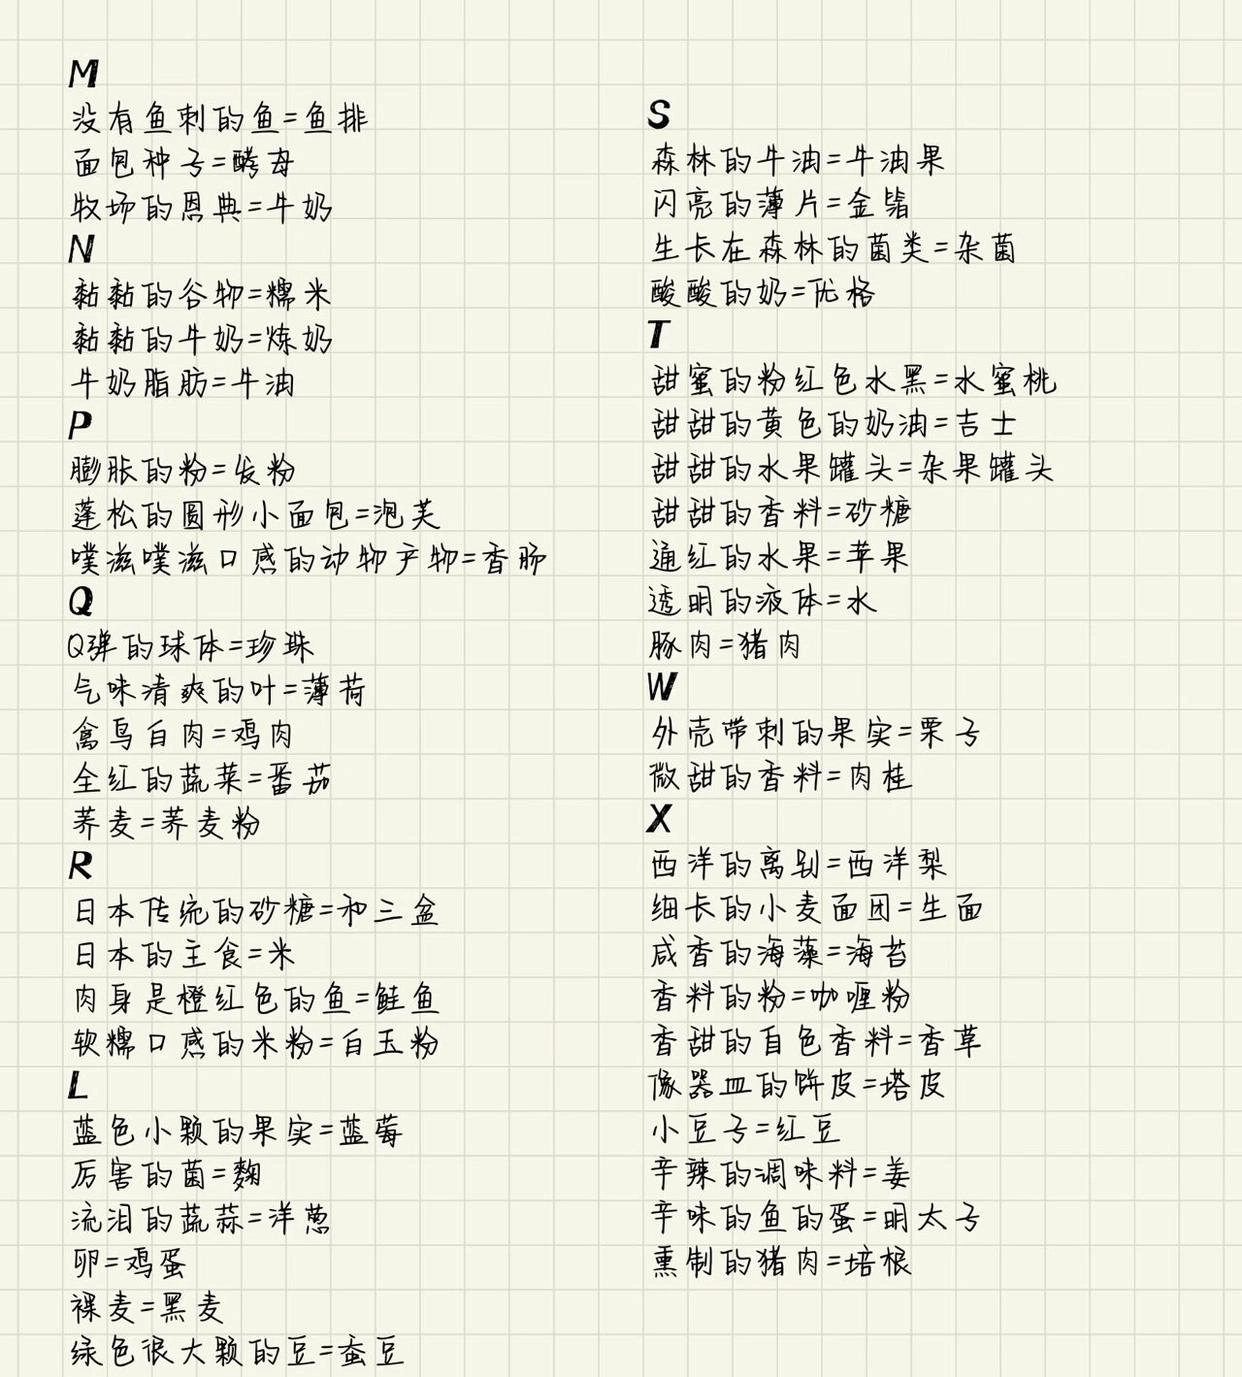 M
没有鱼刺的鱼=鱼排
面包种子=酵母
牧场的恩典=牛奶
N
黏黏的谷物=糯米
黏黏的牛奶=炼奶
牛奶脂肪=牛油
P
膨胀的粉=发粉
蓬松的圆形小面包=泡芙
噗滋噗滋口感的动物产物=香肠
Q
Q弹的球体=珍珠
气味清爽的叶=薄荷
禽鸟白肉=鸡肉
全红的蔬菜=番茄
荞麦=荞麦粉
R
日本传统的砂糖=和三盆
日本的主食=米
肉身是橙红色的鱼=鲑鱼
软糯口感的米粉=白玉粉
L
蓝色小颗的果实=蓝莓
厉害的菌=麴
流泪的蔬蒜=洋葱
卵=鸡蛋
裸麦=黑麦
绿色很大颗的豆=蚕豆
S
森林的牛油=牛油果
闪亮的薄片=金箔
生长在森林的菌类=杂菌
酸酸的奶=优格
T
甜蜜的粉红色水黑=水蜜桃
甜甜的黄色的奶油=吉士
甜甜的水果罐头=杂果罐头
甜甜的香料=砂糖
通红的水果=苹果
透明的液体=水
豚肉=猪肉
W
外壳带刺的果实=栗子
微甜的香料=肉桂
X
西洋的离别=西洋梨
细长的小麦面团=生面
咸香的海藻=海苔
香料的粉=咖喱粉
香甜的白色香料=香草
像器皿的饼皮=塔皮
小豆子=红豆
辛辣的调味料=姜
辛味的鱼的蛋=明太子
熏制的猪肉=培根